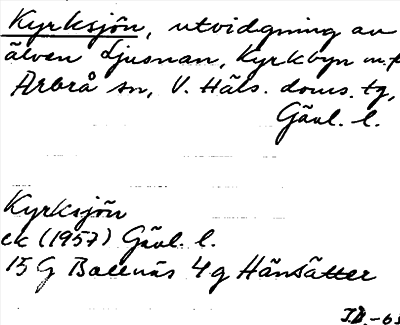 Kyrksjön, utvidgning av
älven Ljusnan, Kyrkbyn m.fl.
Arbrå sn, V. Häls. doms. tg,
Gävl. l.
Kyrksjön
ek (1957) Gävl. l.
15G Bollnäs 4g Hänsätter